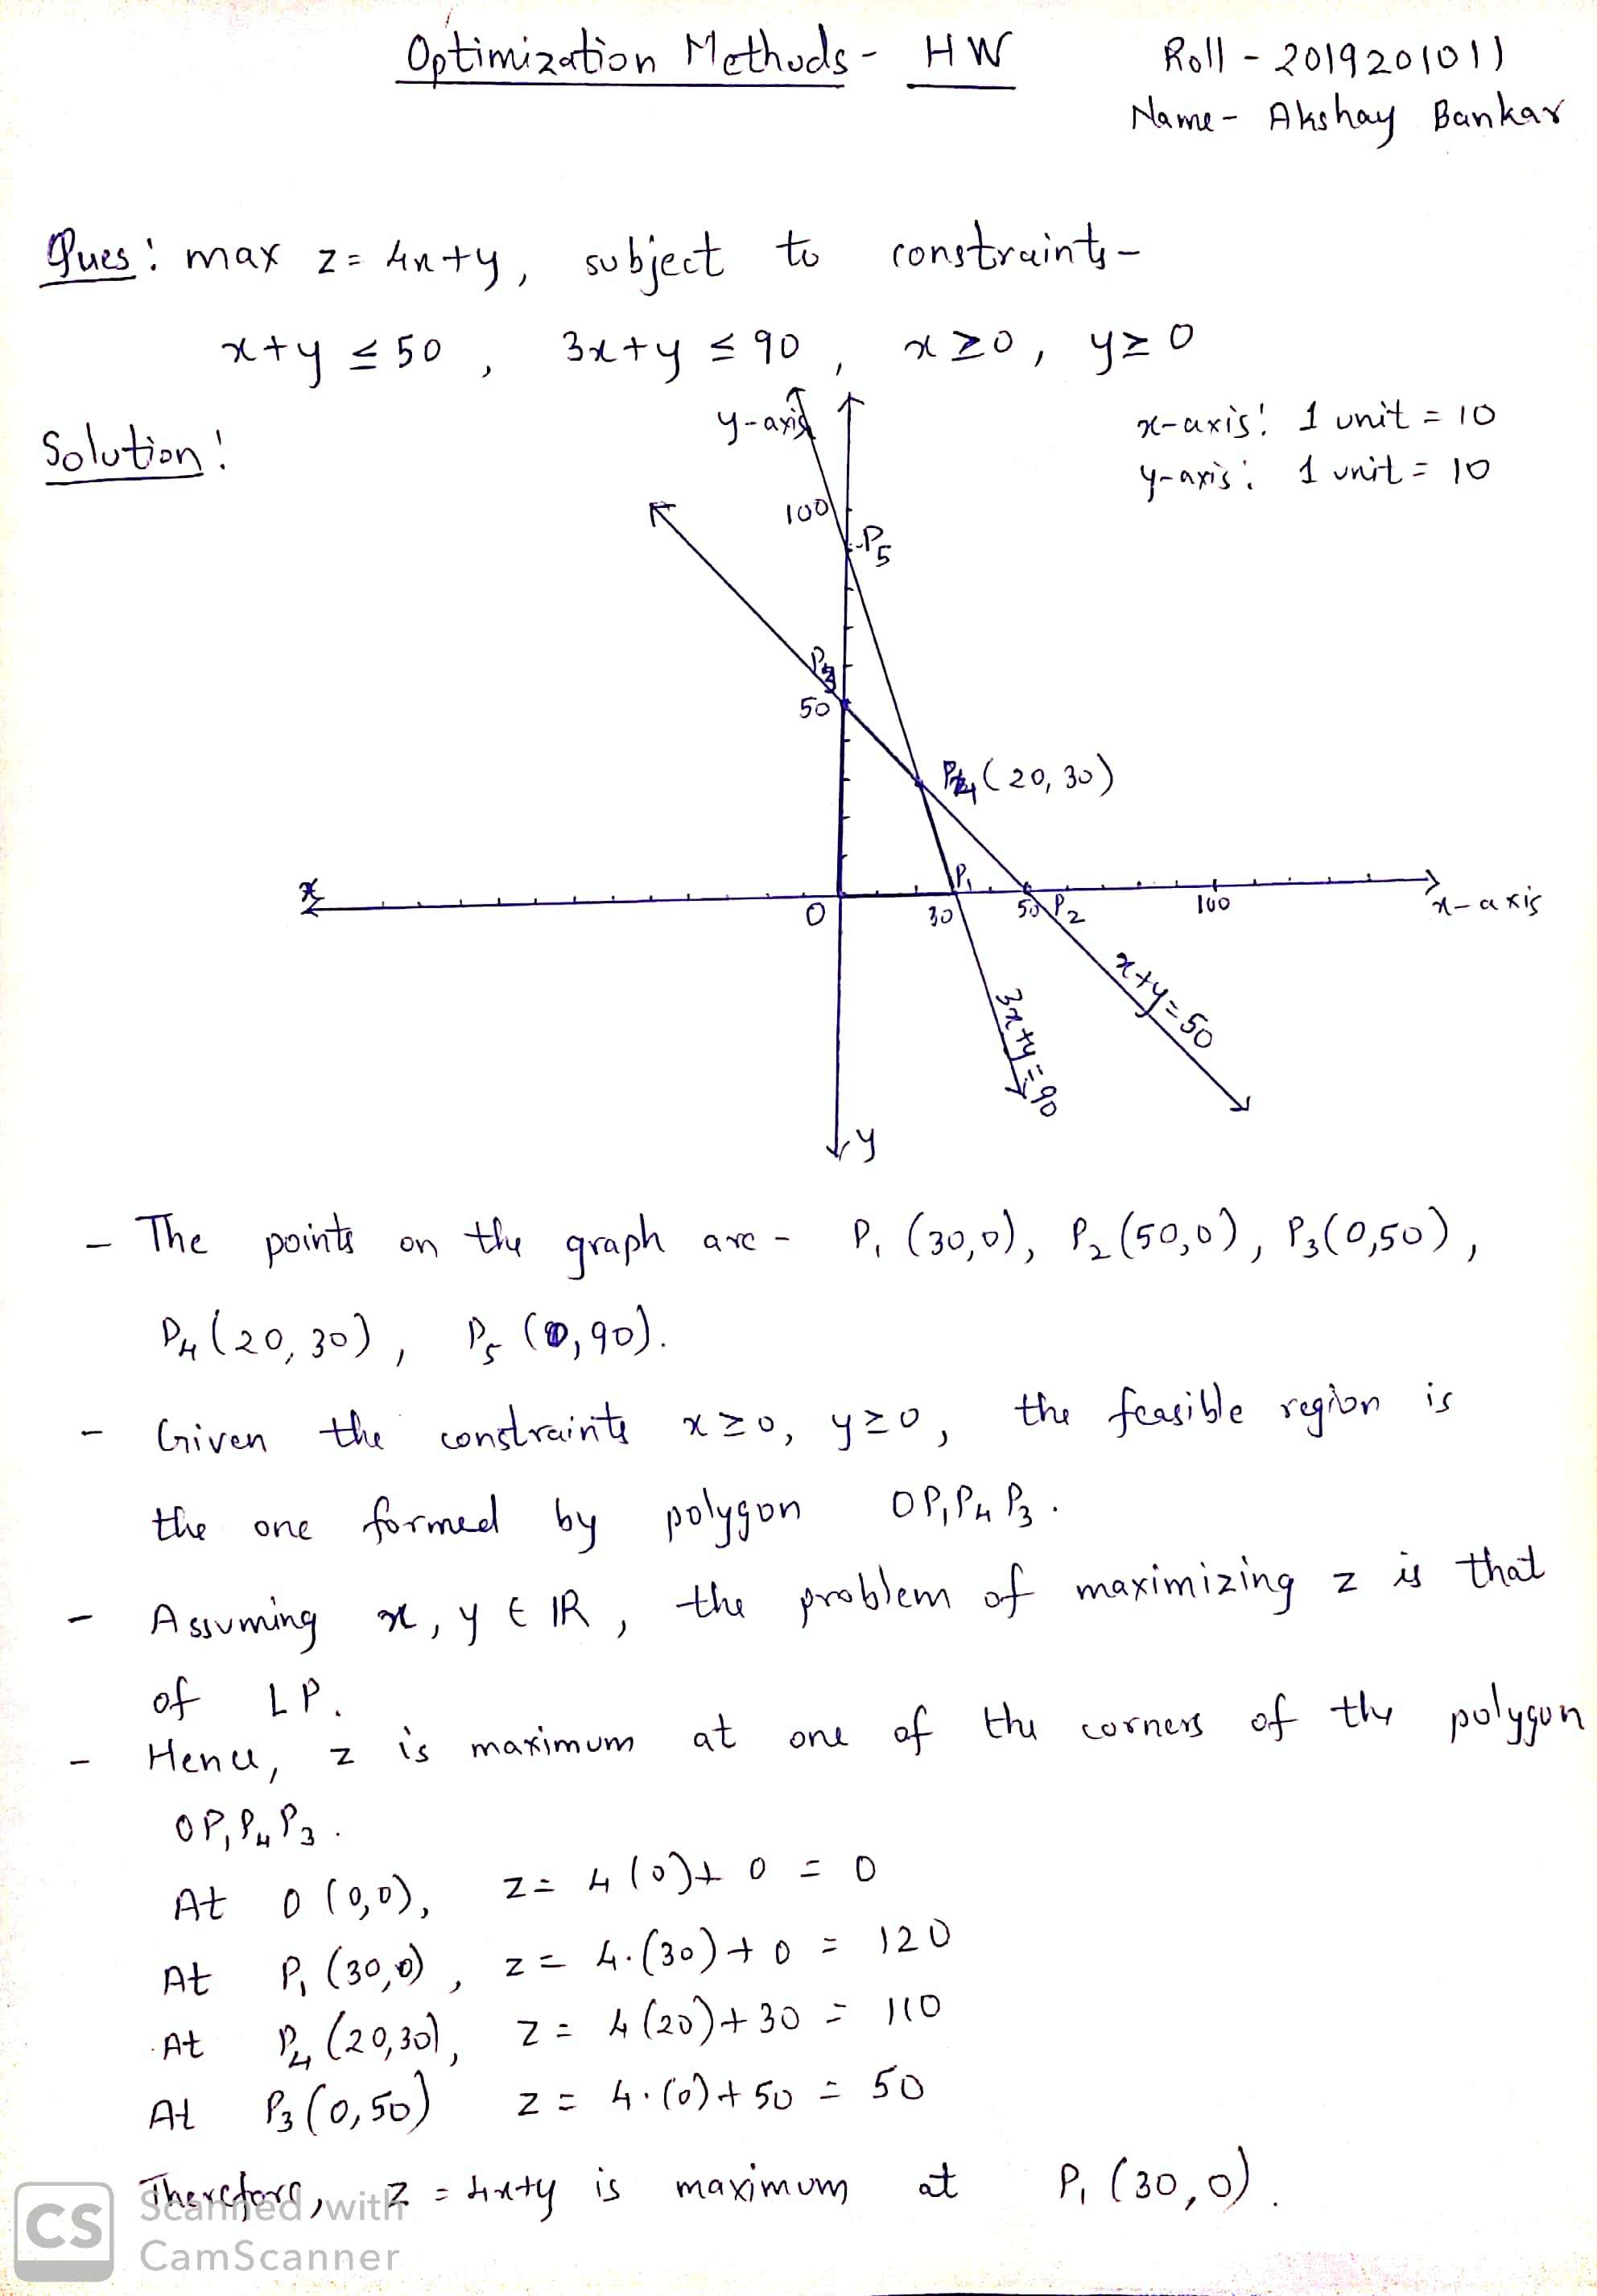 Optimization Methods - HW
Roll - 2019201011
Name - Akshay Bankar
Ques: max z = 4x+y, subject to constraints-
x+y ≤ 50 , 3x+y ≤ 90 , x ≥ 0, y ≥ 0
Solution:
y-axis
x-axis: 1 unit = 10
y-axis: 1 unit = 10
100
P5
P3
50
P4 (20, 30)
P1
0
30
50
P2
100
x-axis
x+y=50
3x+y=90
y
- The points on the graph are - P1 (30,0), P2 (50,0), P3(0,50),
P4 (20, 30), P5 (0, 90).
- Given the constraints x ≥ 0, y ≥ 0, the feasible region is
the one formed by polygon OP1P4P3.
- Assuming x, y ∈ IR, the problem of maximizing z is that
of LP.
- Hence, z is maximum at one of the corners of the polygon
OP1P4P3.
At O (0,0), z = 4(0)+ 0 = 0
At P1 (30,0), z = 4.(30)+0 = 120
At P4 (20,30), z = 4(20)+30 = 110
At P3(0,50) z = 4.(0)+50 = 50
Therefore, z = 4x+y is maximum at P1 (30,0).
CS
Scanned with
CamScanner